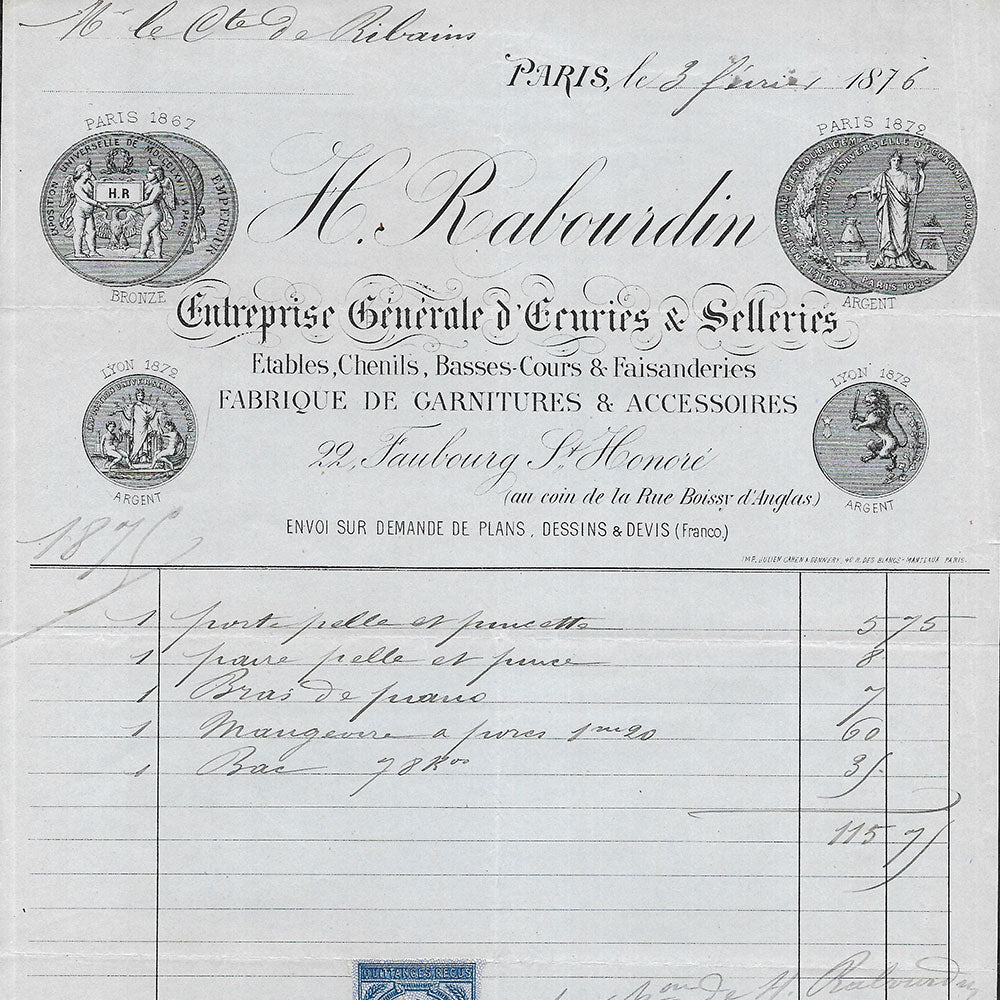 Mr le Cte de Ribains
PARIS, le 3 février 1876
PARIS 1867
EXPOSITION UNIVERSELLE DE
H.R
EMPEREUR
BRONZE
PARIS 1872
ARGENT
H. Rabourdin
Entreprise Générale d'Ecuries & Selleries
Etables, Chenils, Basses-Cours & Faisanderies
FABRIQUE DE GARNITURES & ACCESSOIRES
LYON 1872
ARGENT
LYON 1872
ARGENT
22, Faubourg St Honoré
(au coin de la Rue Boissy d'Anglas.)
ENVOI SUR DEMANDE DE PLANS, DESSINS & DEVIS (Franco.)
IMP. JULIEN CAHEN & DENNERY, 40 R. DES BLANCS-MANTEAUX PARIS.
1875
1 porte pelle et pincette 5 75
1 paire pelle et pince 8
1 Bras de piano 7
1 Mangeoire a porcs 1m20 60
1 Bac 78 Kos 35
115 75
QUITTANCES REÇUS
de H. Rabourdin